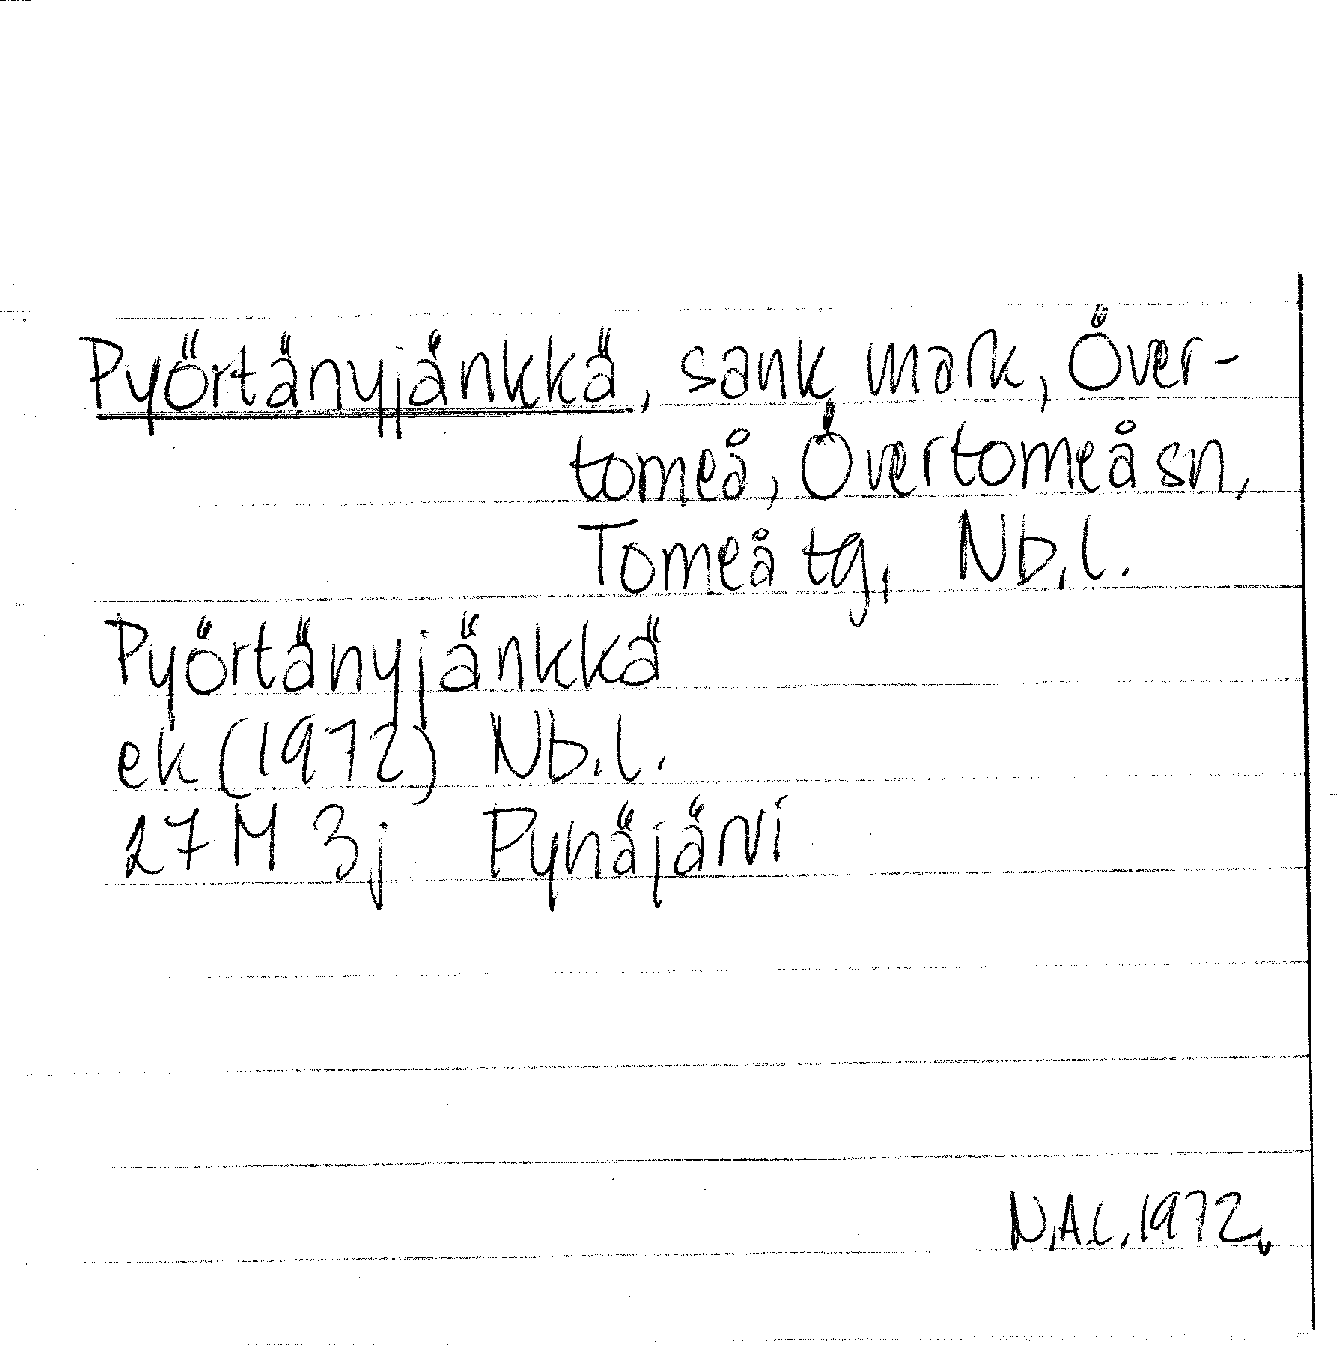 Pyörtänyjänkkä, sank mark, Över-
torneå, Övertorneå sn,
Torneå tg, Nb.l.
Pyörtänyjänkkä
ek (1972) Nb.l.
27 M 3j Pynäjärvi
N.A.C. 1972.